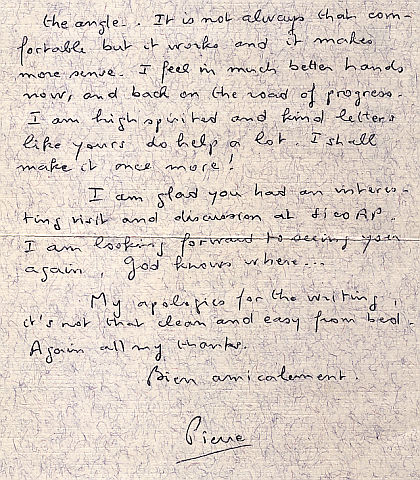 the angle.. It is not always that com-
fortable but it works and it makes
more sense. I feel in much better hands
now, and back on the road of progress.
I am high spirited and kind letters
like yours do help a lot. I shall
make it once more!
I am glad you had an interes-
ting visit and discussion at
I am looking forward to seeing you
again, God knows where...
My apologies for the writing,
it's not that clean and easy from bed.
Again all my thanks.
Bien amicalement.
Pierre